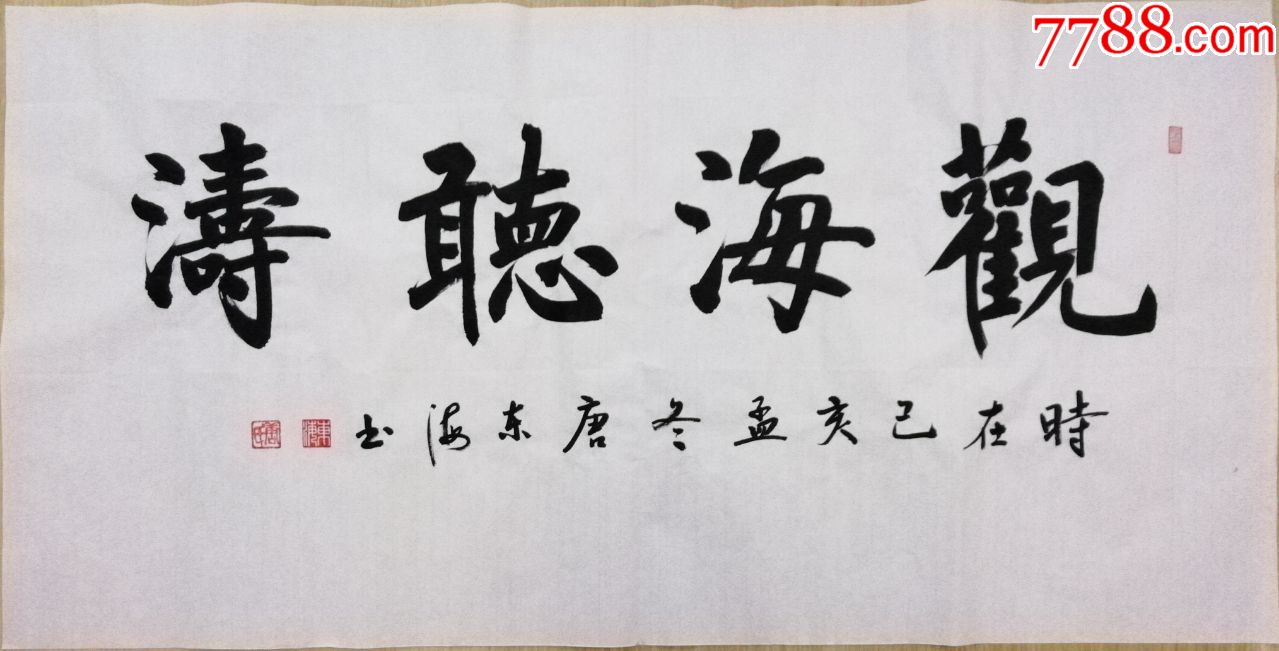 7788.com
觀海聽濤
時在己亥孟冬唐东海书
東海